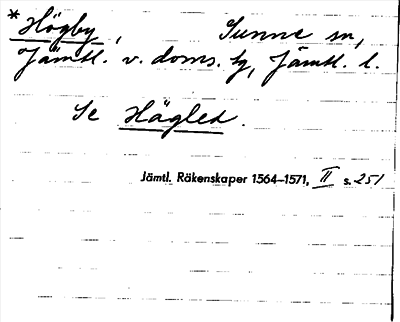 * Högby, Sunne sn,
Jämtl. v. doms. tg, Jämtl. l.
Se Högled.
Jämtl. Räkenskaper 1564–1571, II s. 251